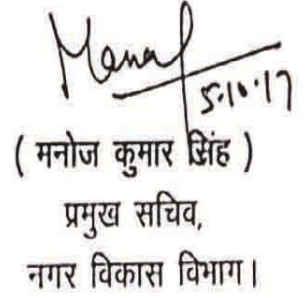 Manoj
5.10.17
( मनोज कुमार सिंह )
प्रमुख सचिव,
नगर विकास विभाग।